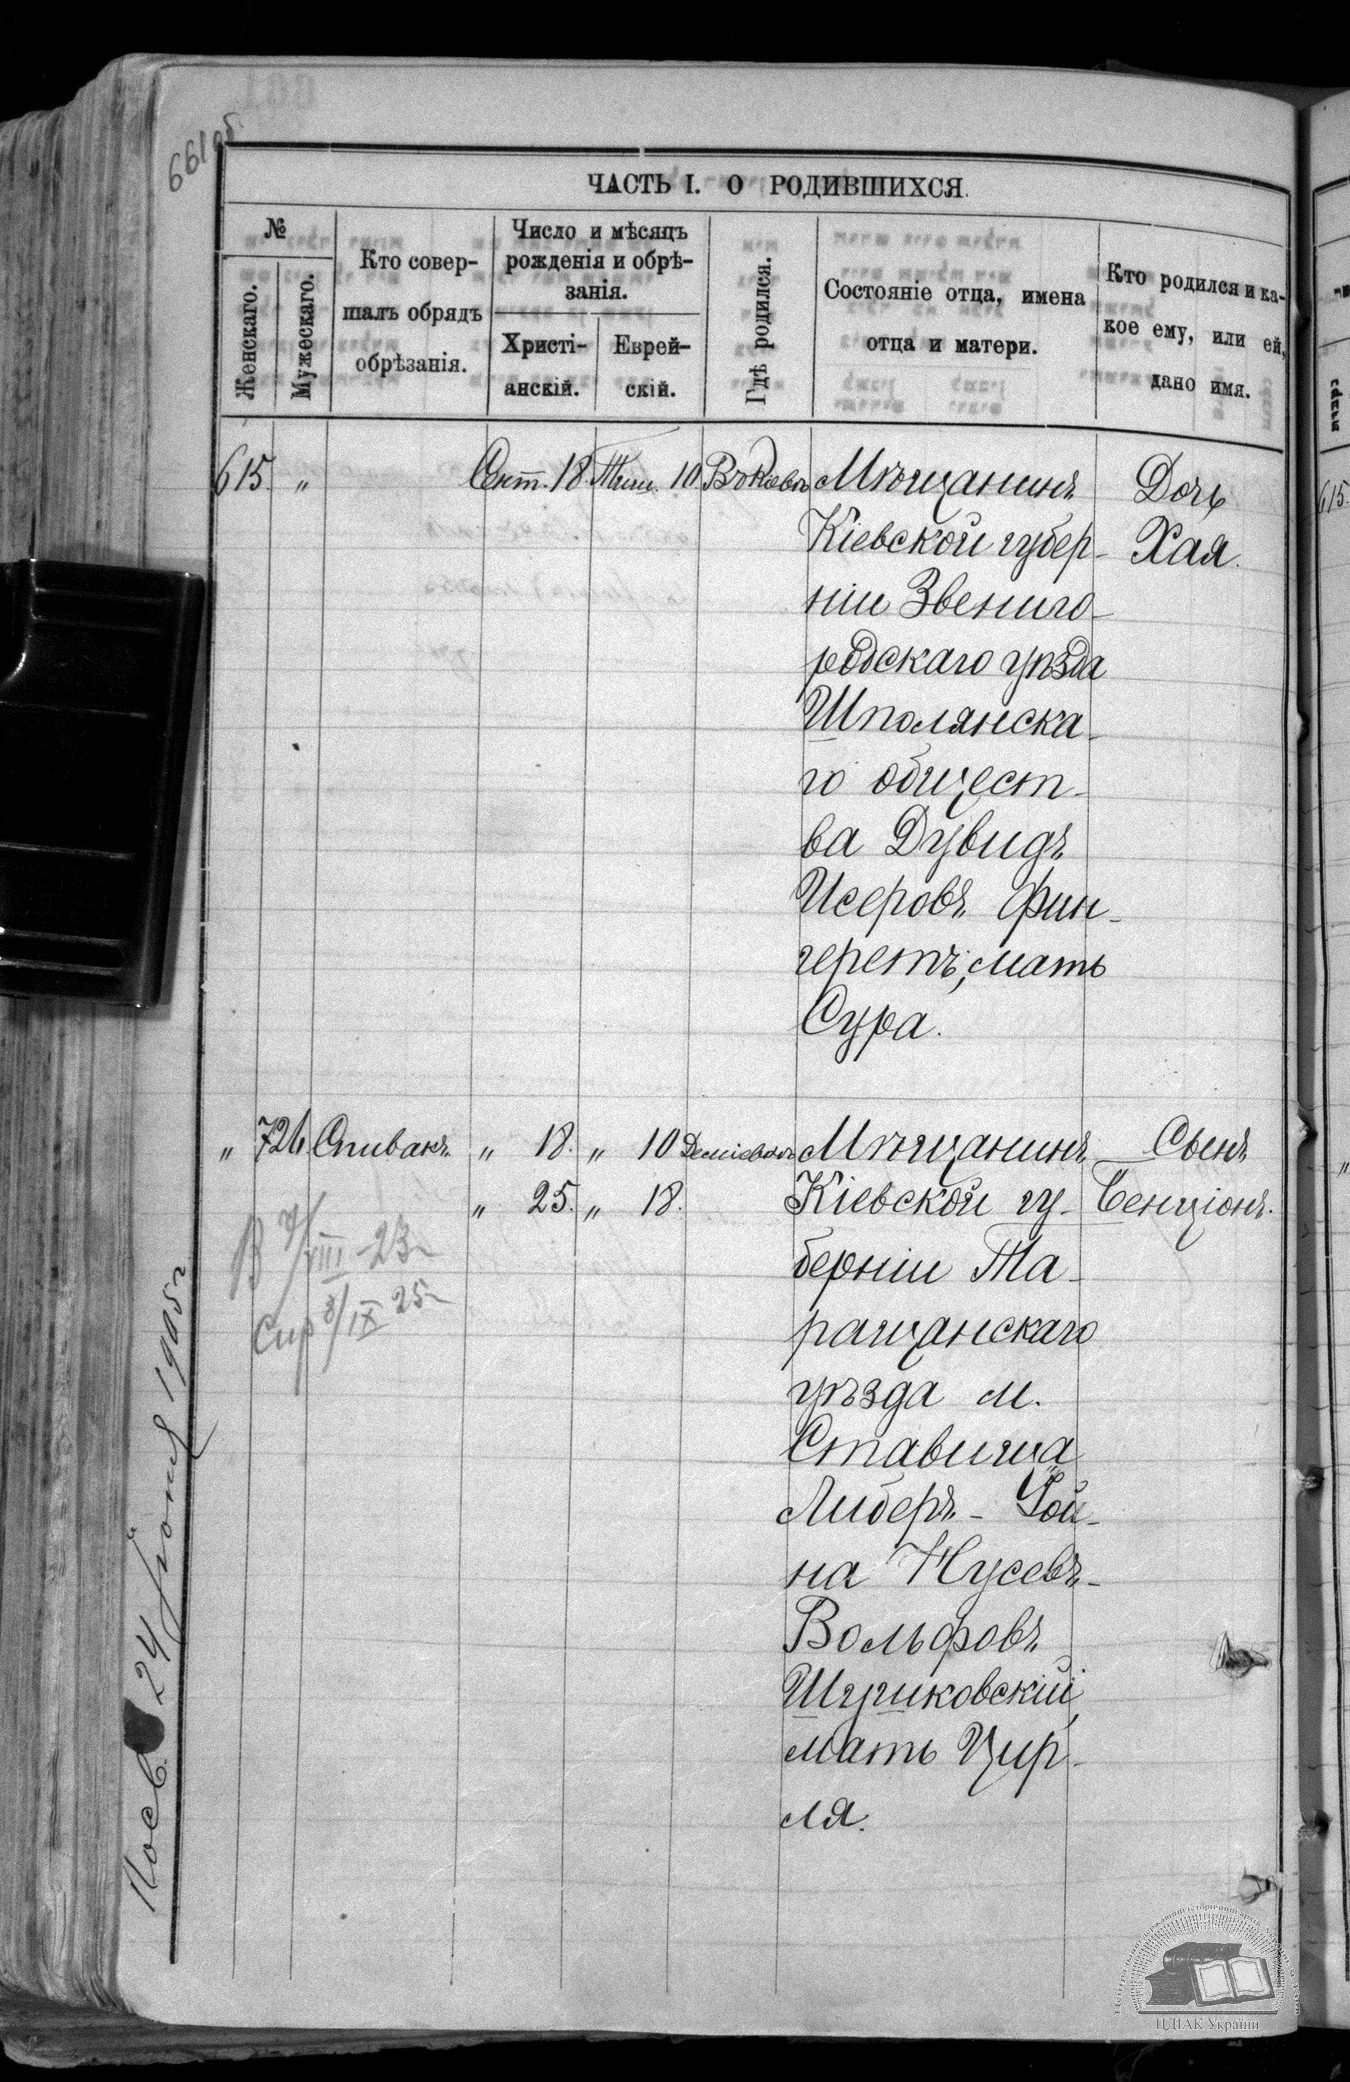 661 об.
ЧАСТЬ I. О РОДИВШИХСЯ.
№
Женскаго.
Мужескаго.
Кто совер-
шалъ обрядъ
обрѣзанія.
Число и мѣсяцъ
рожденія и обрѣ-
занія.
Христі-
анскій.
Еврей-
скій.
Гдѣ родился.
Состояніе отца, имена
отца и матери.
Кто родился и ка-
кое ему, или ей,
дано имя.
615. „ Окт. 18. Тиш. 10. Въ Кіевѣ Мѣщанинъ Дочь
Кіевской губер- Хая.
ніи Звениго-
родскаго уѣзда
Шполянска-
го общест-
ва Дувидъ
Исеровъ Фин-
геретъ, мать
Сура.
„ 726. Спивакъ. „ 18. „ 10 Деміевкѣ Мѣщанинъ Сынъ
„ 25. „ 18. Кіевской гу- Бенціонъ.
берніи Та-
ращанскаго
уѣзда м.
Ставища
Либеръ-Іой-
на Нусевъ-
Вольфовъ
Шушковскій,
мать Цир-
ля.
В 7/VIII-23
Спр 8/IX 25
24 Іюня 1905 г
615.
„
ЦДІАК України